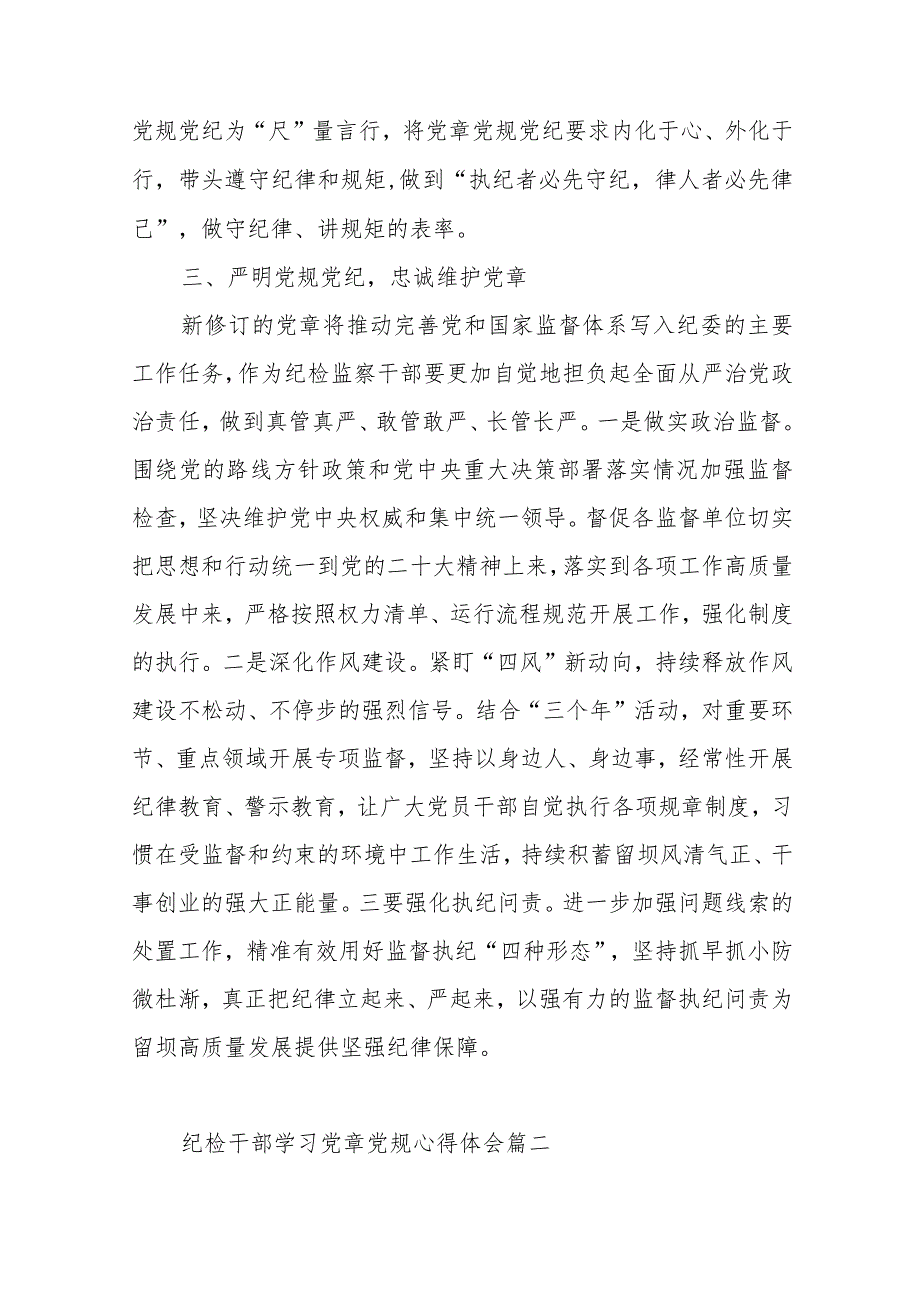 党规党纪为“尺”量言行，将党章党规党纪要求内化于心、外化于
行，带头遵守纪律和规矩,做到“执纪者必先守纪，律人者必先律
己”，做守纪律、讲规矩的表率。
三、严明党规党纪，忠诚维护党章
新修订的党章将推动完善党和国家监督体系写入纪委的主要
工作任务，作为纪检监察干部要更加自觉地担负起全面从严治党政
治责任，做到真管真严、敢管敢严、长管长严。一是做实政治监督。
围绕党的路线方针政策和党中央重大决策部署落实情况加强监督
检查，坚决维护党中央权威和集中统一领导。督促各监督单位切实
把思想和行动统一到党的二十大精神上来，落实到各项工作高质量
发展中来，严格按照权力清单、运行流程规范开展工作，强化制度
的执行。二是深化作风建设。紧盯“四风”新动向，持续释放作风
建设不松动、不停步的强烈信号。结合“三个年”活动，对重要环
节、重点领域开展专项监督，坚持以身边人、身边事，经常性开展
纪律教育、警示教育，让广大党员干部自觉执行各项规章制度，习
惯在受监督和约束的环境中工作生活，持续积蓄留坝风清气正、干
事创业的强大正能量。三要强化执纪问责。进一步加强问题线索的
处置工作，精准有效用好监督执纪“四种形态”，坚持抓早抓小防
微杜渐，真正把纪律立起来、严起来，以强有力的监督执纪问责为
留坝高质量发展提供坚强纪律保障。
纪检干部学习党章党规心得体会篇二